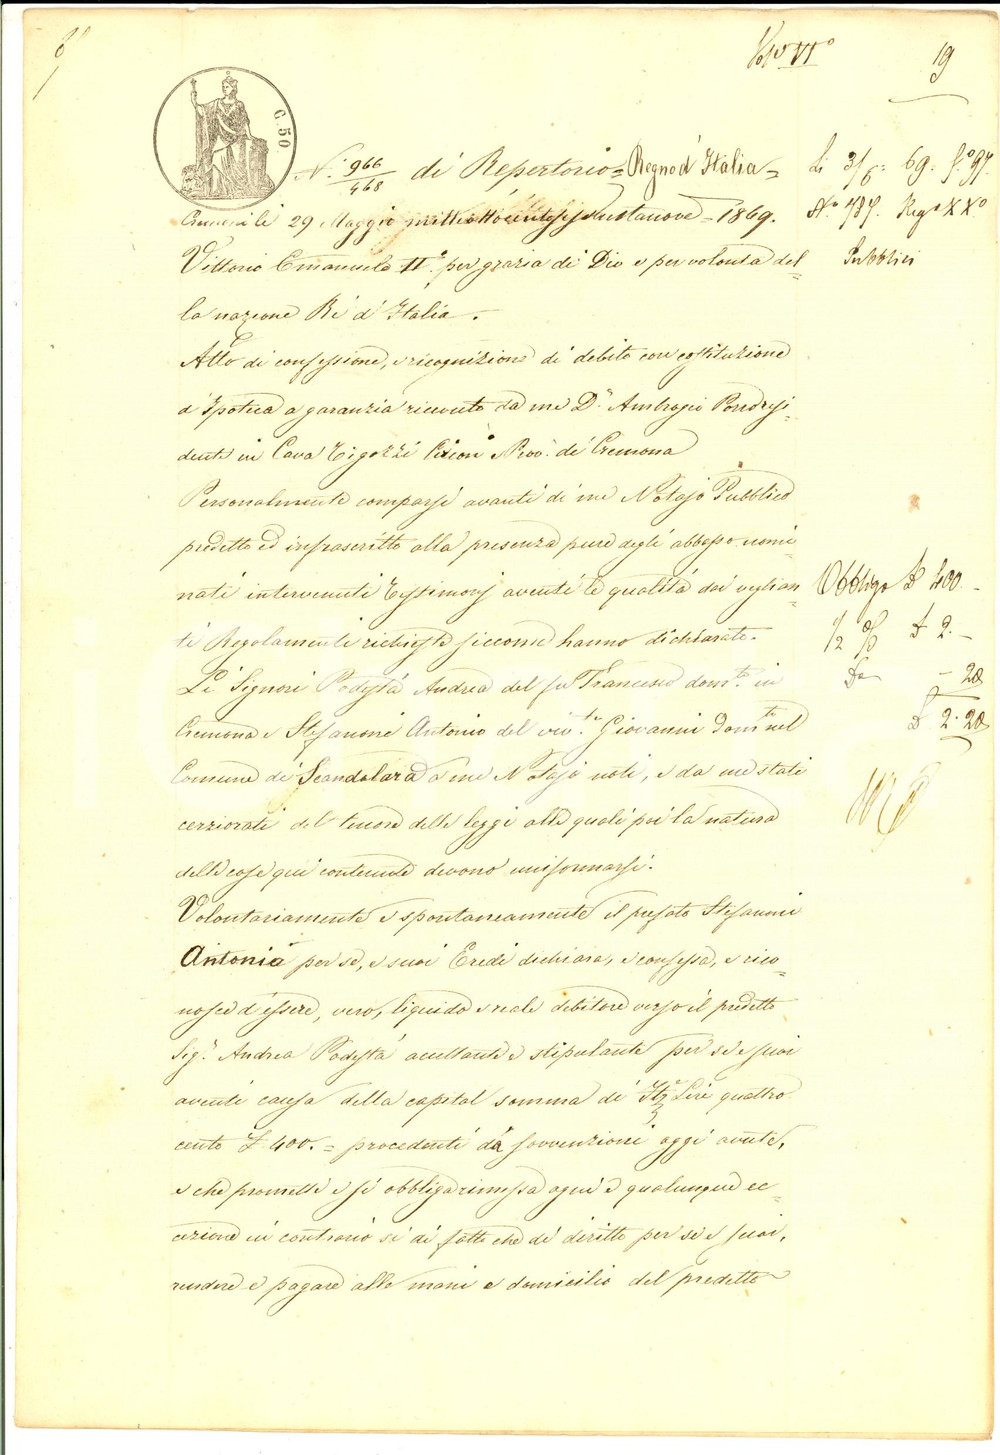 19
C. 50
N.° 966/468 di Repertorio = Regno d'Italia =
Li 3/6: 69. f.° 97.
Cremona li 29 Maggio milleottocentosessantanove = 1869.
N.° 787. Reg.° XX°
Pubblici
Vittorio Emanuele II° per grazia di Dio e per volontà del=
la nazione Rè d'Italia.
Atto di confessione, e ricognizione di debito con costituzione
d'Ipoteca a garanzia ricevuto da me D.r Ambrogio Porro resi=
dente in Cava Tigozzi Prov.a di Cremona
Personalmente comparsi avanti di me Notajo Pubblico
predetto ed infrascritto alla presenza pure degli abbasso nomi=
nati intervenuti Testimonj aventi le qualità dai veglian=
ti Regolamenti richieste siccome hanno dichiarato.
Obbligo £ 400.
1/2 % £ 2. -
- 20
£ 2.20
Li Signori Podestà Andrea del fu Francesco dom.to in
Cremona e Stefanoni Antonio del viv.te Giovanni dom.to nel
Comune di Scandolara a me Notajo noti, e da me stati
cerziorati del tenore delle leggi alle quali per la natura
delle cose qui contenute devono uniformarsi.
Volontariamente e spontaneamente il prefato Stefanoni
Antonio per sè, e suoi Eredi dichiara, e confessa, e rico=
nosce d'essere, vero, liquido e reale debitore verso il predetto
Sig.r Andrea Podestà accettante e stipulante per sè e suoi
aventi causa della capital somma di It.e Lire quattro
cento £. 400. = procedenti da sovvenzioni oggi avute,
e che promette e si obbliga rimossa ogni e qualunque ec=
cezione in contrario sì di fatto che di diritto per sè e suoi,
rendere e pagare alle mani e domicilio del predetto